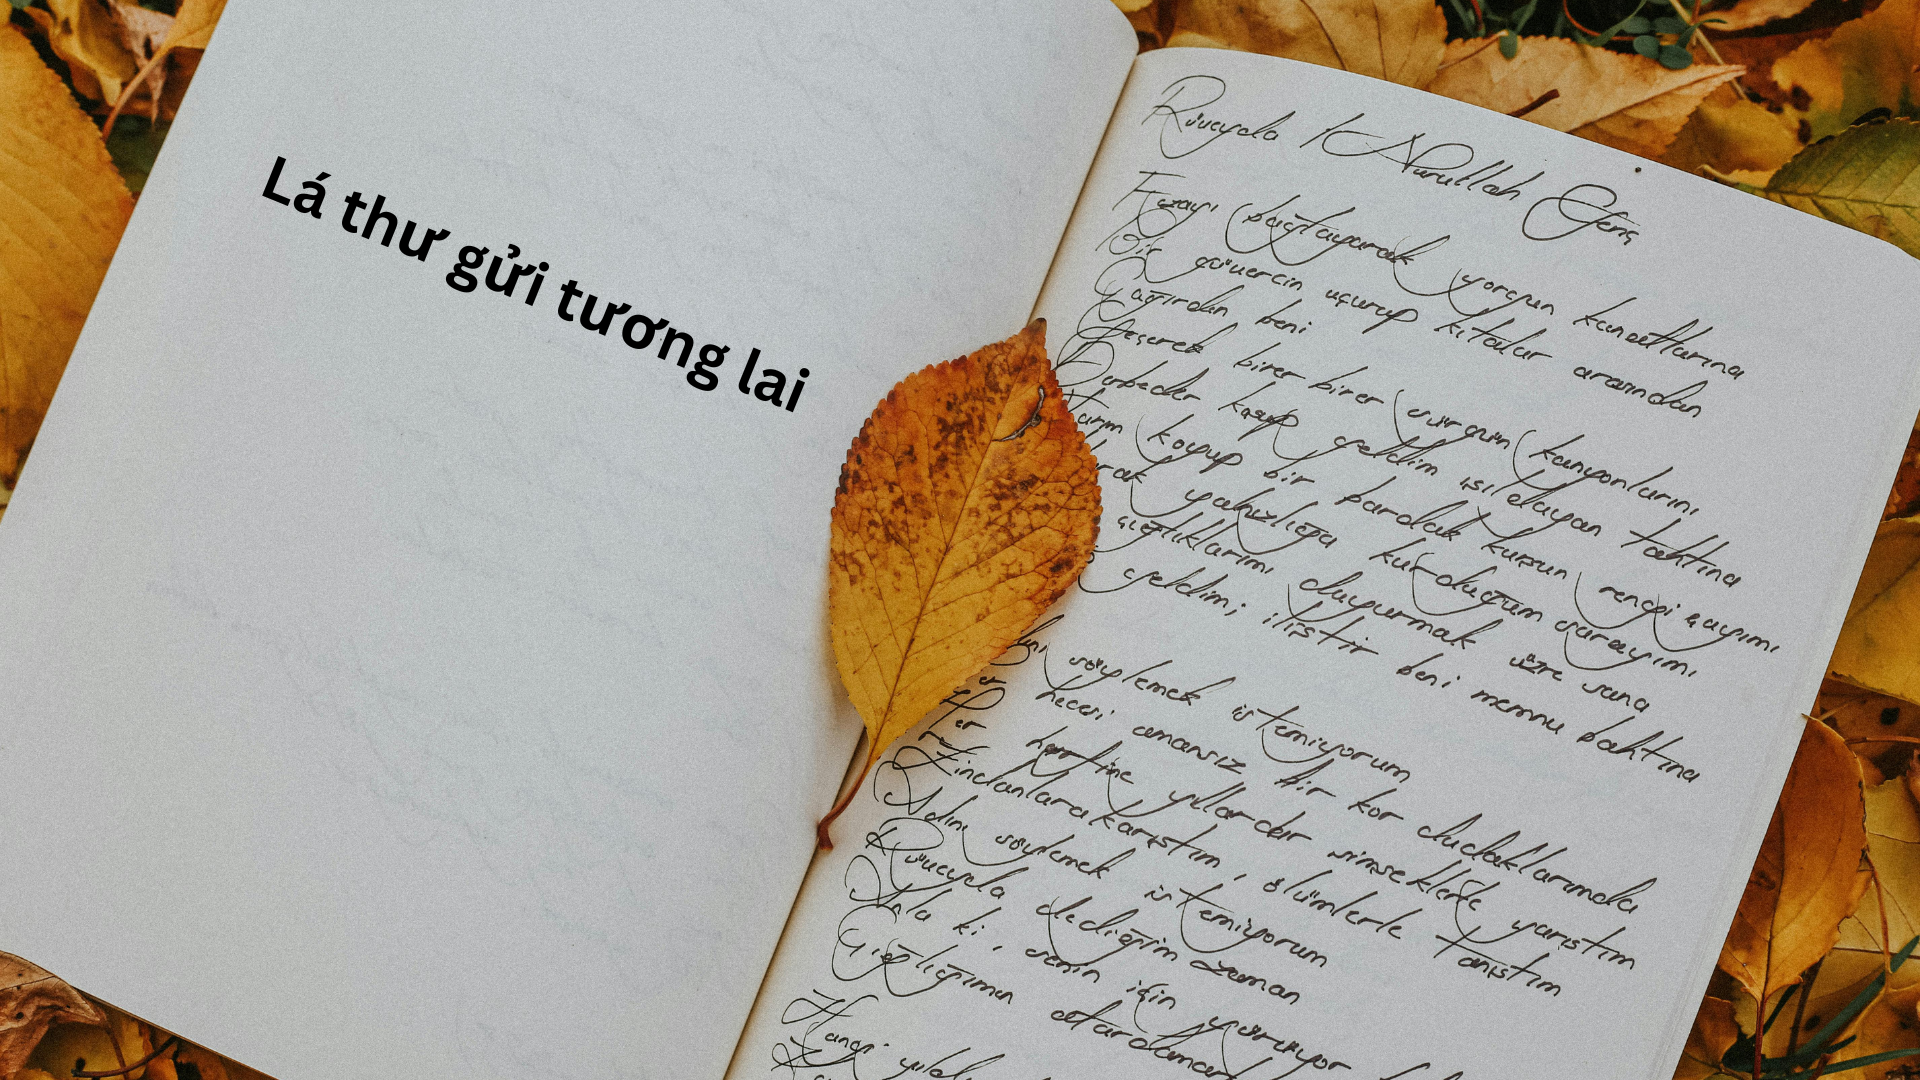 Lá thư gửi tương lai
Rüveyda / Nurullah Genç
Fuzayi bağlayarak yorgun kanatlarına
Bir güvercin uçurup kıtalar arasından
Çağırdın beni
Geçerek birer birer sürgün kanyonlarını
Derbeder koşup geldim ışıldayan tahtına
koyup bir bardak kurşun rengi çayımı
yalnızlığa kurduğum sarayımı
çığlıklarımı duyurmak üzre sana
geldim; iliştir beni memnu bahtına
söylemek istemiyorum
hecesi amansız bir kor dudaklarımda
Her harfine yıllardır şimşeklerle yarıştım
Zindanlara karıştım, ölümlerle tanıştım
Adını söylemek istemiyorum
Rüveyda dediğim zaman
Anla ki, senin için yürüyor
Çığlığımın atardamar
Hangi